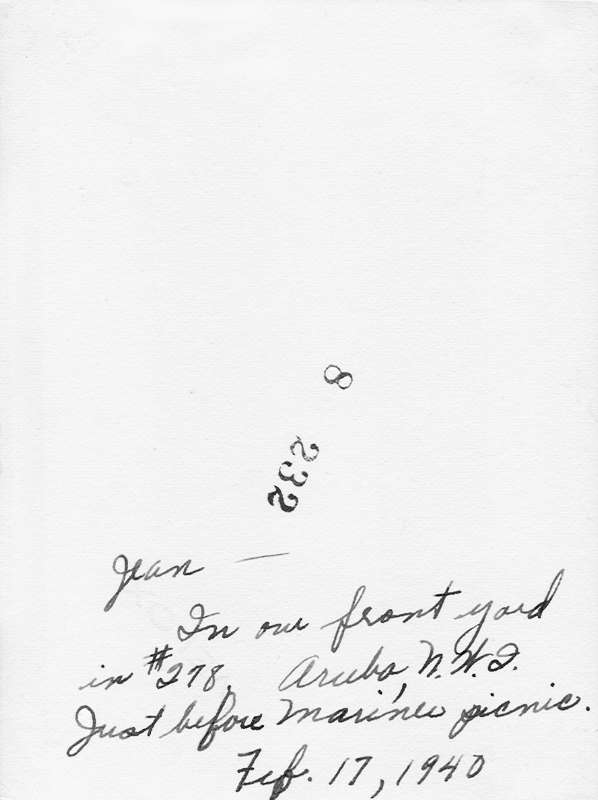 8
232
Jean —
In our front yard
in #278. Aruba N.W.I.
Just before Marine picnic.
Feb. 17, 1940